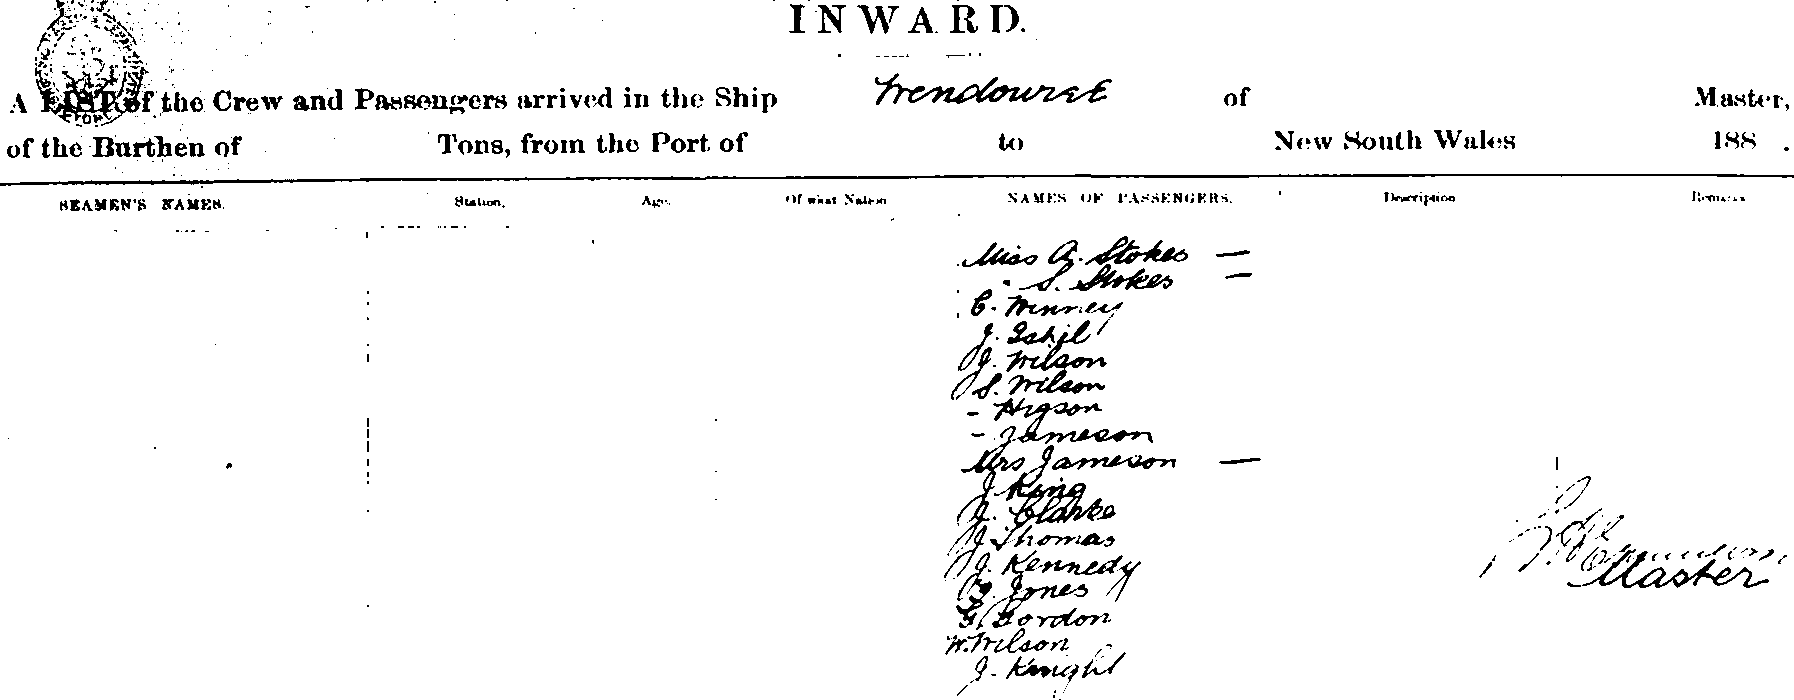 INWARD.
A LIST of the Crew and Passengers arrived in the Ship Wendouree of Master,
of the Burthen of Tons, from the Port of to New South Wales 188 .
SEAMEN'S NAMES. Station. Age. Of what Nation NAMES OF PASSENGERS. Description Remarks
Miss A. Stokes —
" S. Stokes —
C. Winney
J.
J. Wilson
S. Wilson
- Higson
- Jameson
Mrs Jameson —
J. King
J. Clarke
J Thomas
J. Kennedy
Jones
G. Gordon
W. Wilson
J. Knight
Master